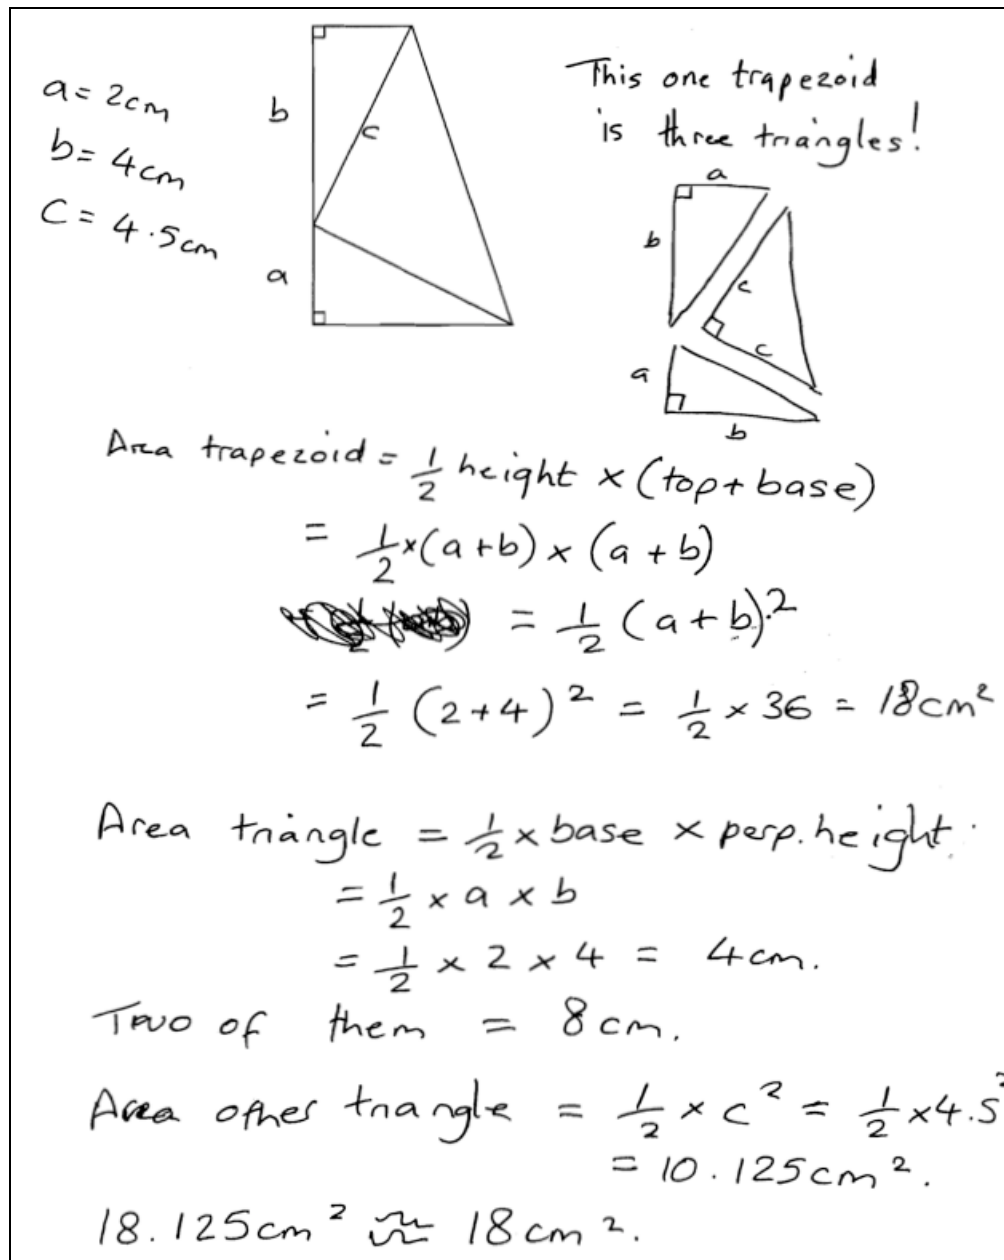 a = 2cm
b = 4cm
C = 4.5cm
b
c
a
This one trapezoid
is three triangles!
a
b
c
c
a
b
Area trapezoid = 1/2 height × (top + base)
= 1/2 × (a + b) × (a + b)
= 1/2 (a + b)²
= 1/2 (2 + 4)² = 1/2 × 36 = 18cm²
Area triangle = 1/2 × base × perp. height.
= 1/2 × a × b
= 1/2 × 2 × 4 = 4cm.
Two of them = 8cm.
Area other triangle = 1/2 × c² = 1/2 × 4.5²
= 10.125cm².
18.125cm² ≈ 18cm².